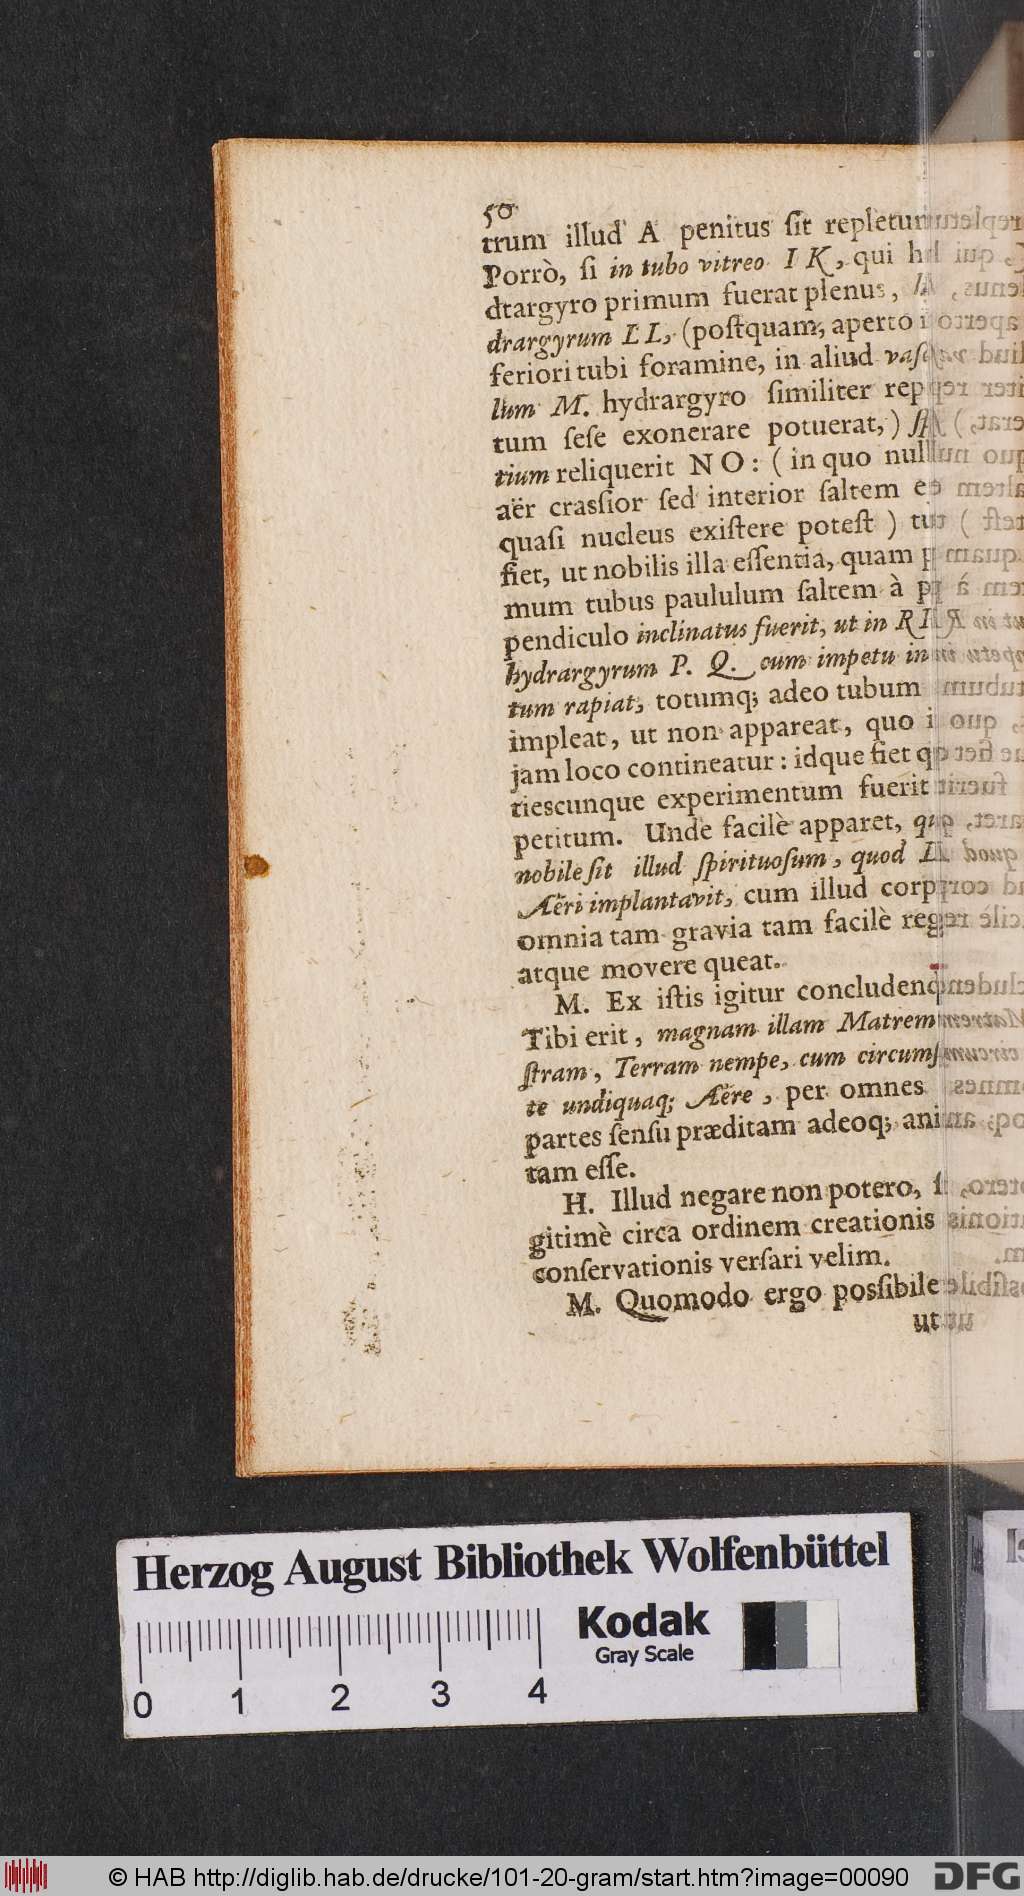 50
trum illud A penitus ſit repletum
Porrò, ſi in tubo vitreo I K, qui h
dtargyro primum fuerat plenus,
drargyrum L L, (poſtquam, aperto i
feriori tubi foramine, in aliud vaſc
lum M. hydrargyro ſimiliter rep
tum ſeſe exonerare potuerat,) ſp
tium reliquerit N O: ( in quo null
aër craſſior ſed interior ſaltem e
quaſi nucleus exiſtere poteſt ) tu
fiet, ut nobilis illa eſſentia, quam p
mum tubus paululum ſaltem à p
pendiculo inclinatus fuerit, ut in R
hydrargyrum P. Q. cum impetu in
tum rapiat, totumq; adeo tubum
impleat, ut non appareat, quo i
jam loco contineatur: idque fiet q
tiescunque experimentum fuerit
petitum. Unde facilè apparet, qu
nobile ſit illud ſpirituoſum, quod
Aëri implantavit, cum illud corp
omnia tam gravia tam facilè reg
atque movere queat.
M. Ex iſtis igitur concluden
Tibi erit, magnam illam Matrem
ſtram, Terram nempe, cum circumſ
te undiquaq; Aëre, per omnes
partes ſenſu præditam adeoq; ani
tam eſſe.
H. Illud negare non potero, ſi
gitimè circa ordinem creationis
conſervationis verſari velim.
M. Quomodo ergo poſſibile
ut
Herzog August Bibliothek Wolfenbüttel
Kodak
Gray Scale
0 1 2 3 4
© HAB http://diglib.hab.de/drucke/101-20-gram/start.htm?image=00090
DFG